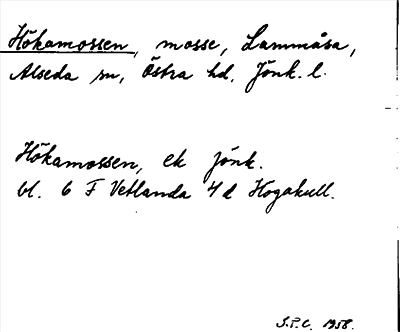 Hökamossen, mosse, Lammåsa,
Alseda sn, Östra hd, Jönk. l.
Hökamossen, ek jönk.
bl. 6 F Vetlanda 4 d Hogakull.
S.P.C. 1958.